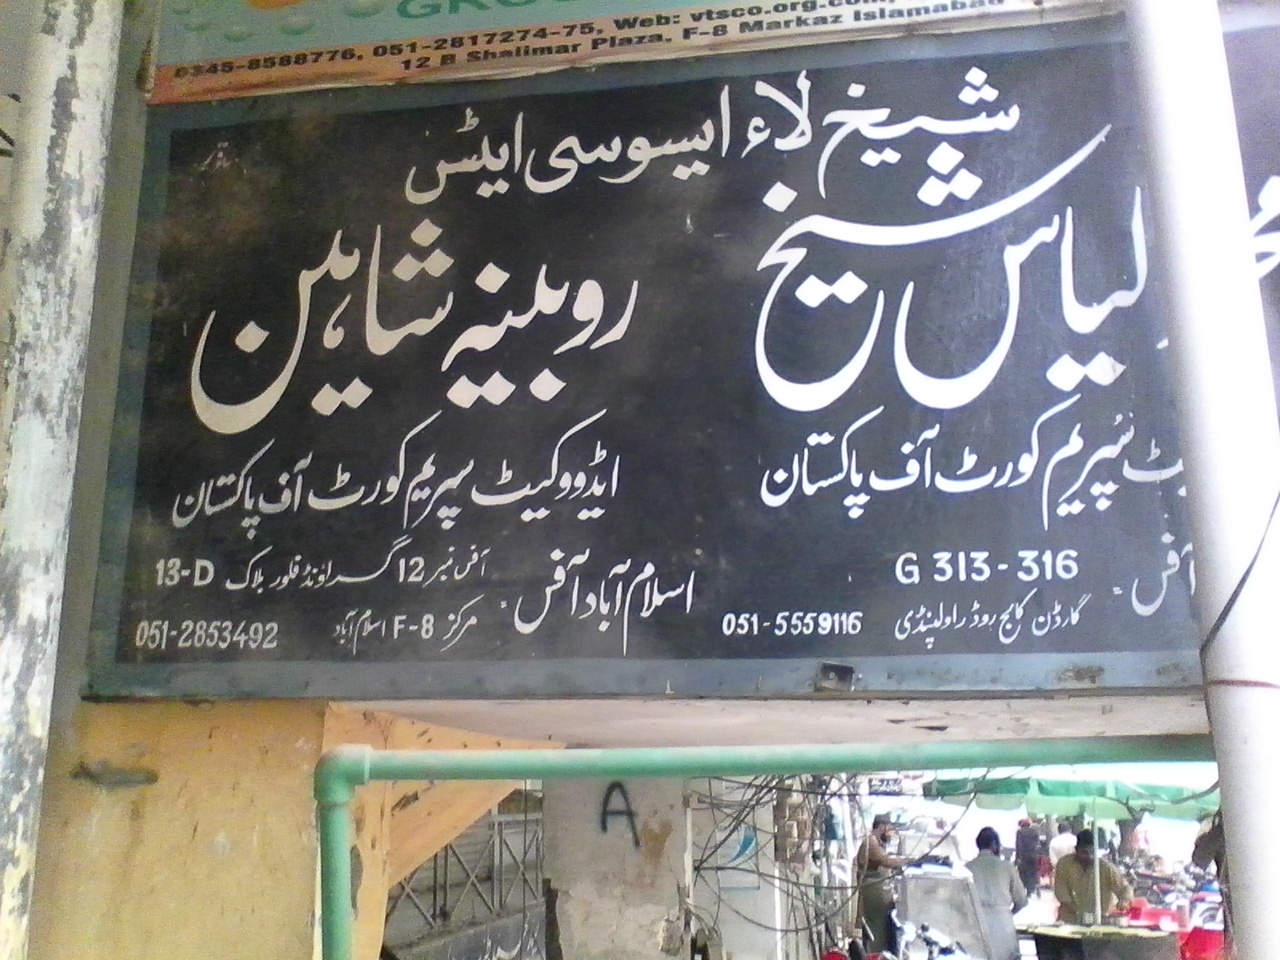 0345-8588776, 051-2817274-75, Web: vtsco.org.com,
12 B Shalimar Plaza, F-8 Markaz Islamabad
شیخ لاء ایسوسی ایٹس
لیاس شیخ
روبینہ شاہین
سپریم کورٹ آف پاکستان
ایڈووکیٹ سپریم کورٹ آف پاکستان
آفس:
G 313-316
گارڈن کالج روڈ راولپنڈی
051-5559116
اسلام آباد آفس:
آفس نمبر 12 گراؤنڈ فلور بلاک 13-D
مرکز F-8 اسلام آباد
051-2853492
A